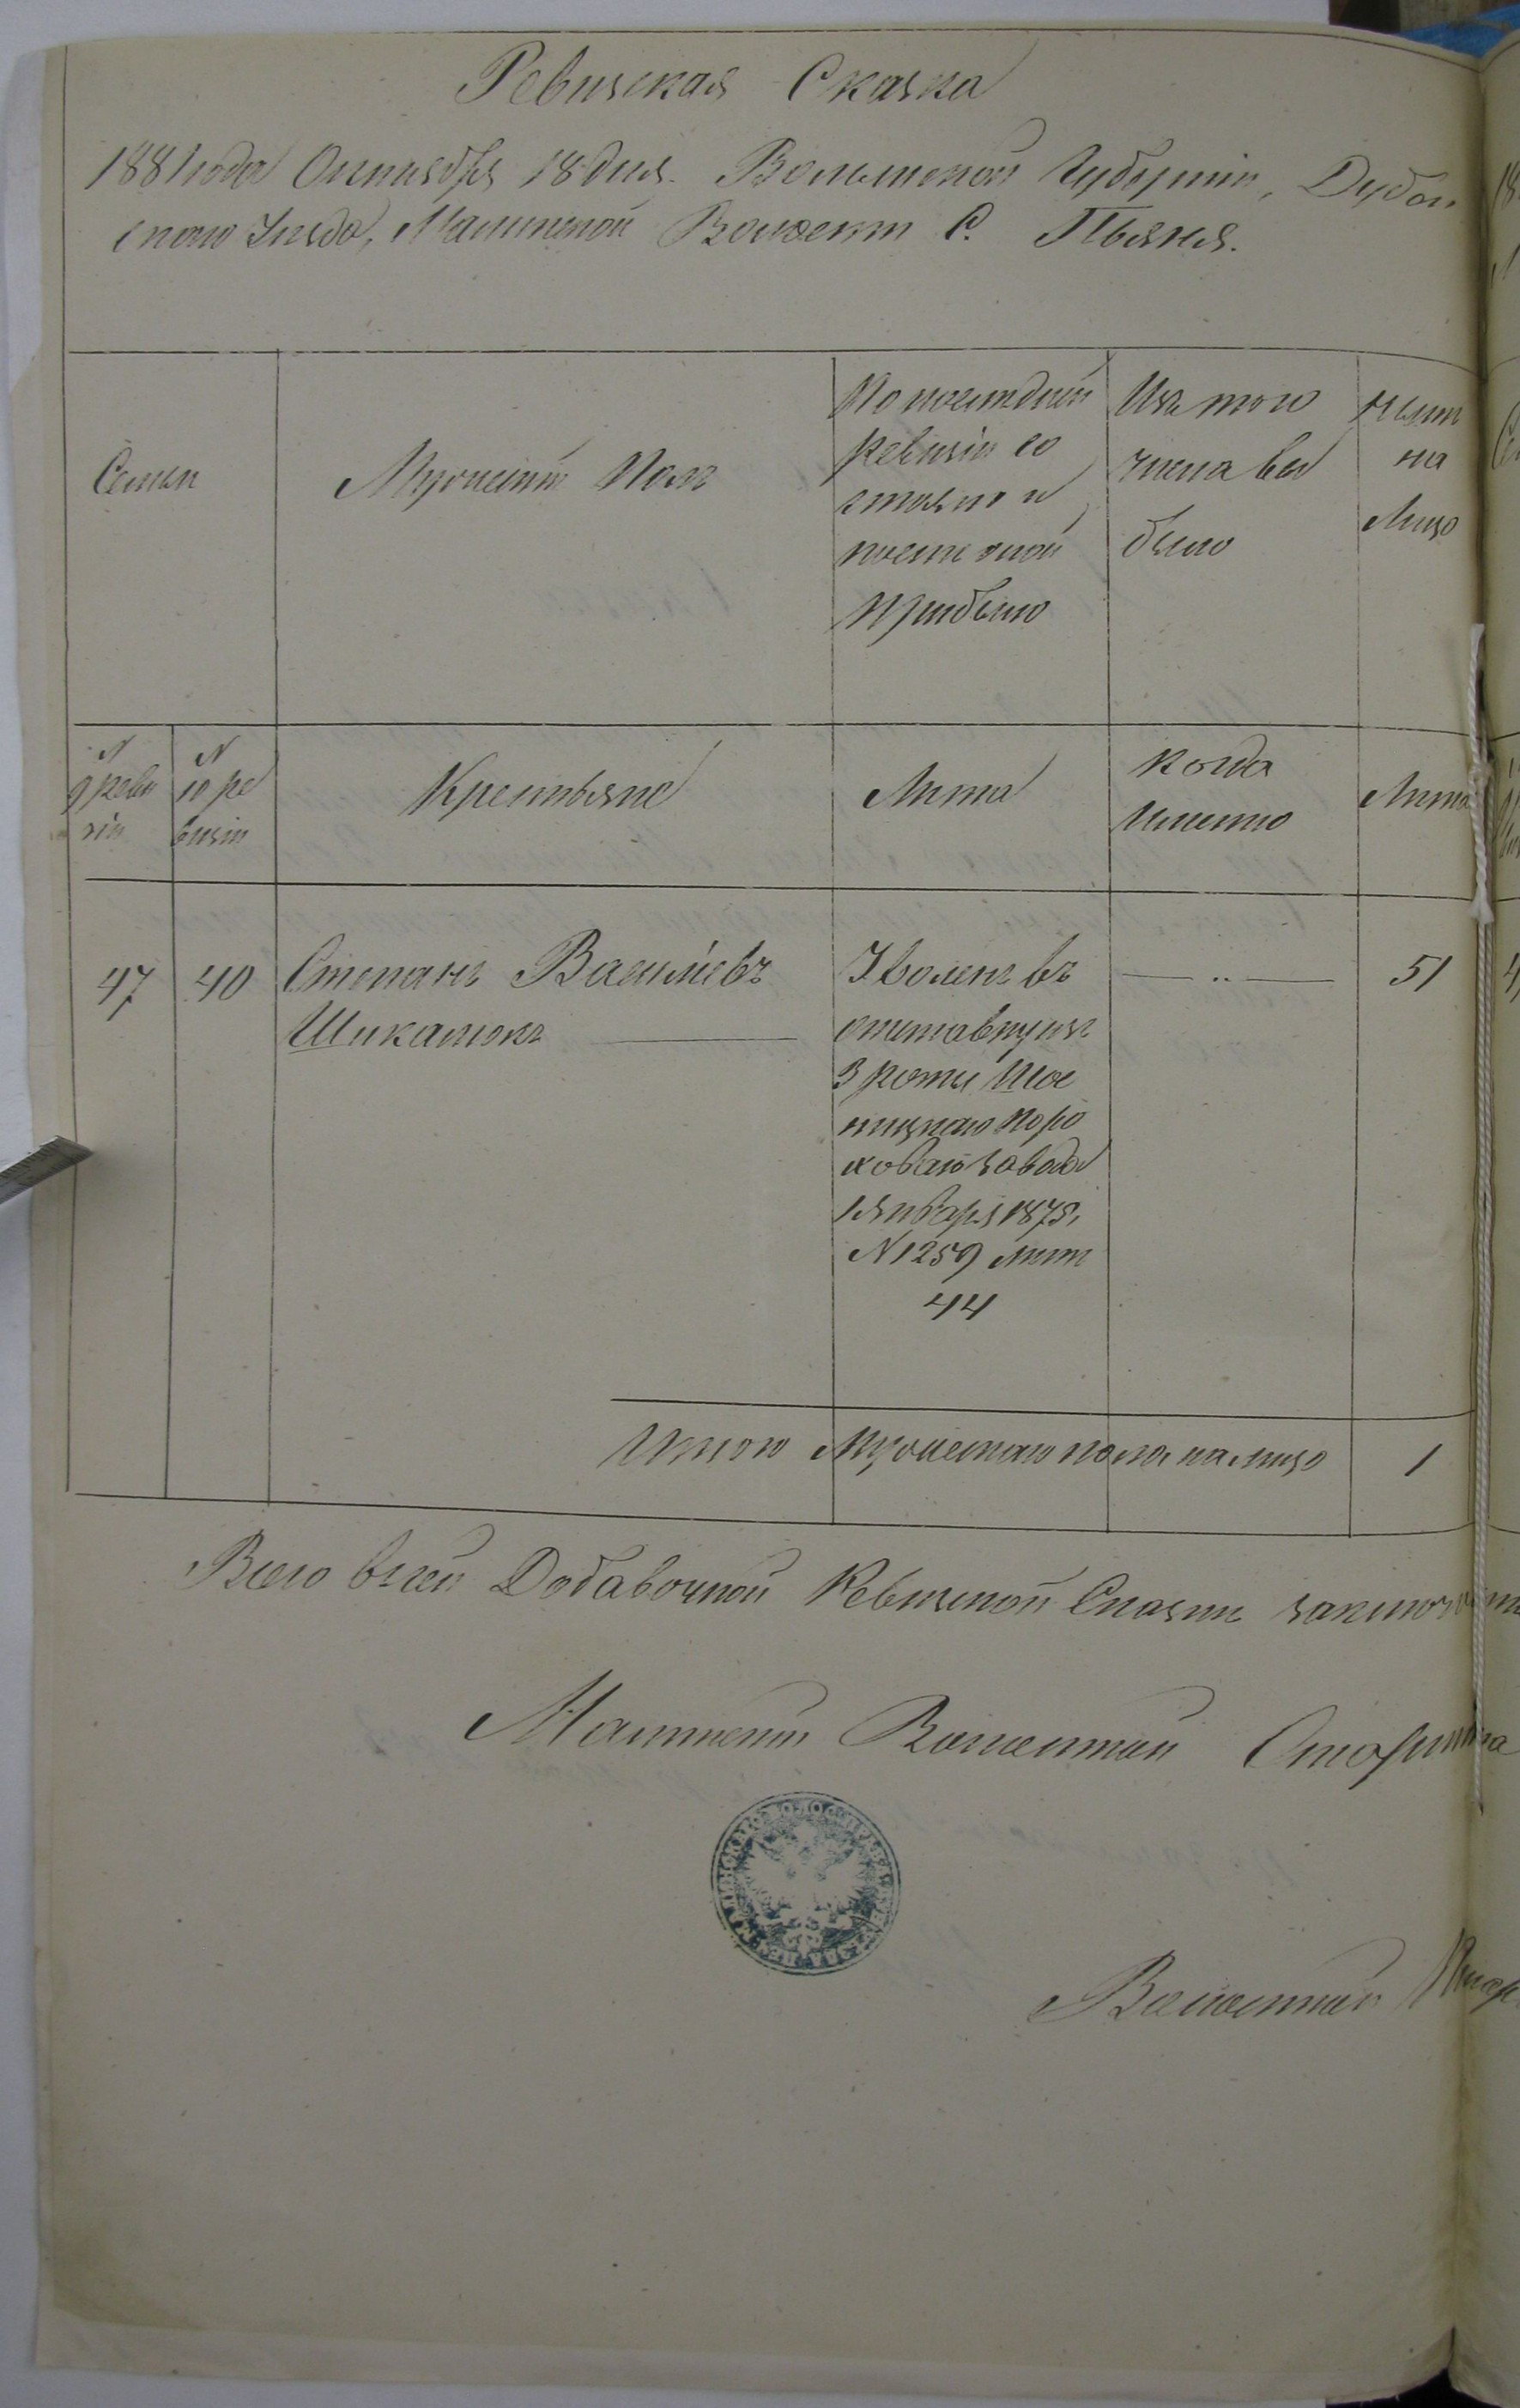 Ревизская Сказка
1881 года Октября 18 дня. Волынской Губернiи, Дубен
скаго Уезда, Малинской Волости С. Пьяня.
Семьи
Мужескiй Полъ
По последней
ревизiи со
стояло и
после оной
прибыло
Изъ того
числа вы
было
Ныне
на
лицо
N
9 реви
зiи
N
10 ре
визiи
Крестьяне
Лета
Когда
именно
Лета
47 40 Степанъ Васильевъ
Шикалюкъ
Уволенъ въ
отставку изъ
3 роты Шос
тенскаго Поро
ховаго завода
1 Января 1875,
N 1259 летъ
44
— „ —
51
Итого Мужескаго пола на лицо 1
Всего въ сей Добавочной Ревизской Сказке
Малинскiй Волостной Старшина
Волостной Писарь